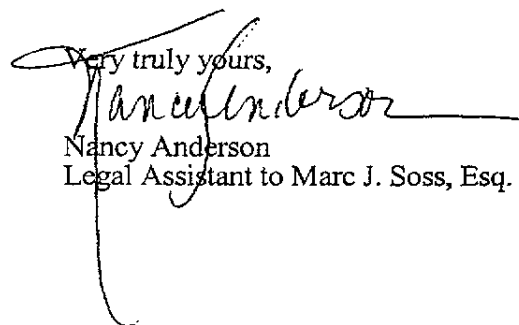 Very truly yours,
Nancy Anderson
Nancy Anderson
Legal Assistant to Marc J. Soss, Esq.